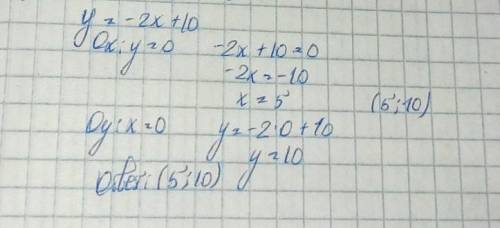 y = -2x+10
Ox: y=0 -2x+10=0
-2x=-10
x=5 (5;10)
Oy: x=0 y=-2·0+10
y=10
Ответ: (5;10)